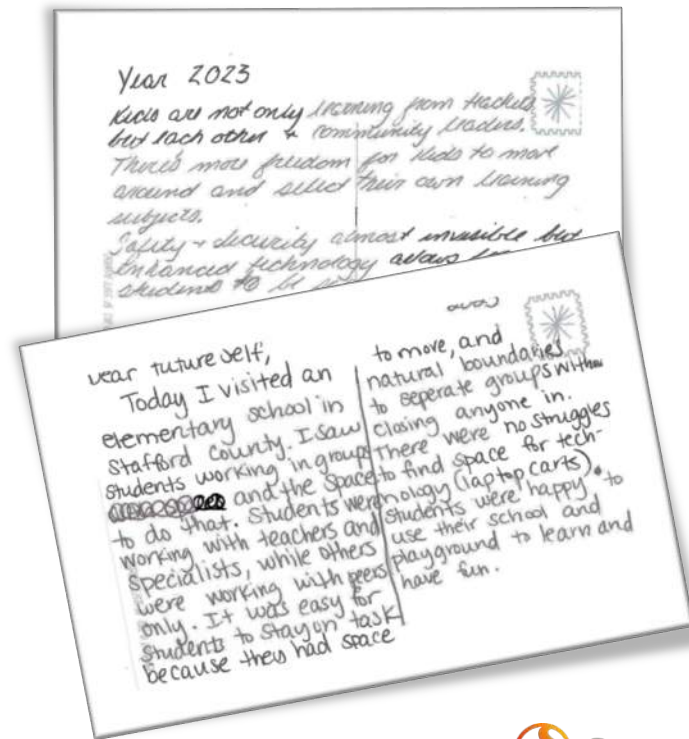 Year 2023
Kids are not only learning from teachers
but each other + community leaders.
There's more freedom for kids to move
around and select their own learning
subjects.
Safety + security almost invisible but
enhanced technology allows
students to be
Dear future self,
Today I visited an
elementary school in
Stafford County. I saw
students working in groups
and the space
to do that. Students were
working with teachers and
specialists, while others
were working with peers
only. It was easy for
students to stay on task
because they had space
to move, and
natural boundaries
to seperate groups without
closing anyone in.
There were no struggles
to find space for tech-
nology (laptop carts).
Students were happy to
use their school and
playground to learn and
have fun.